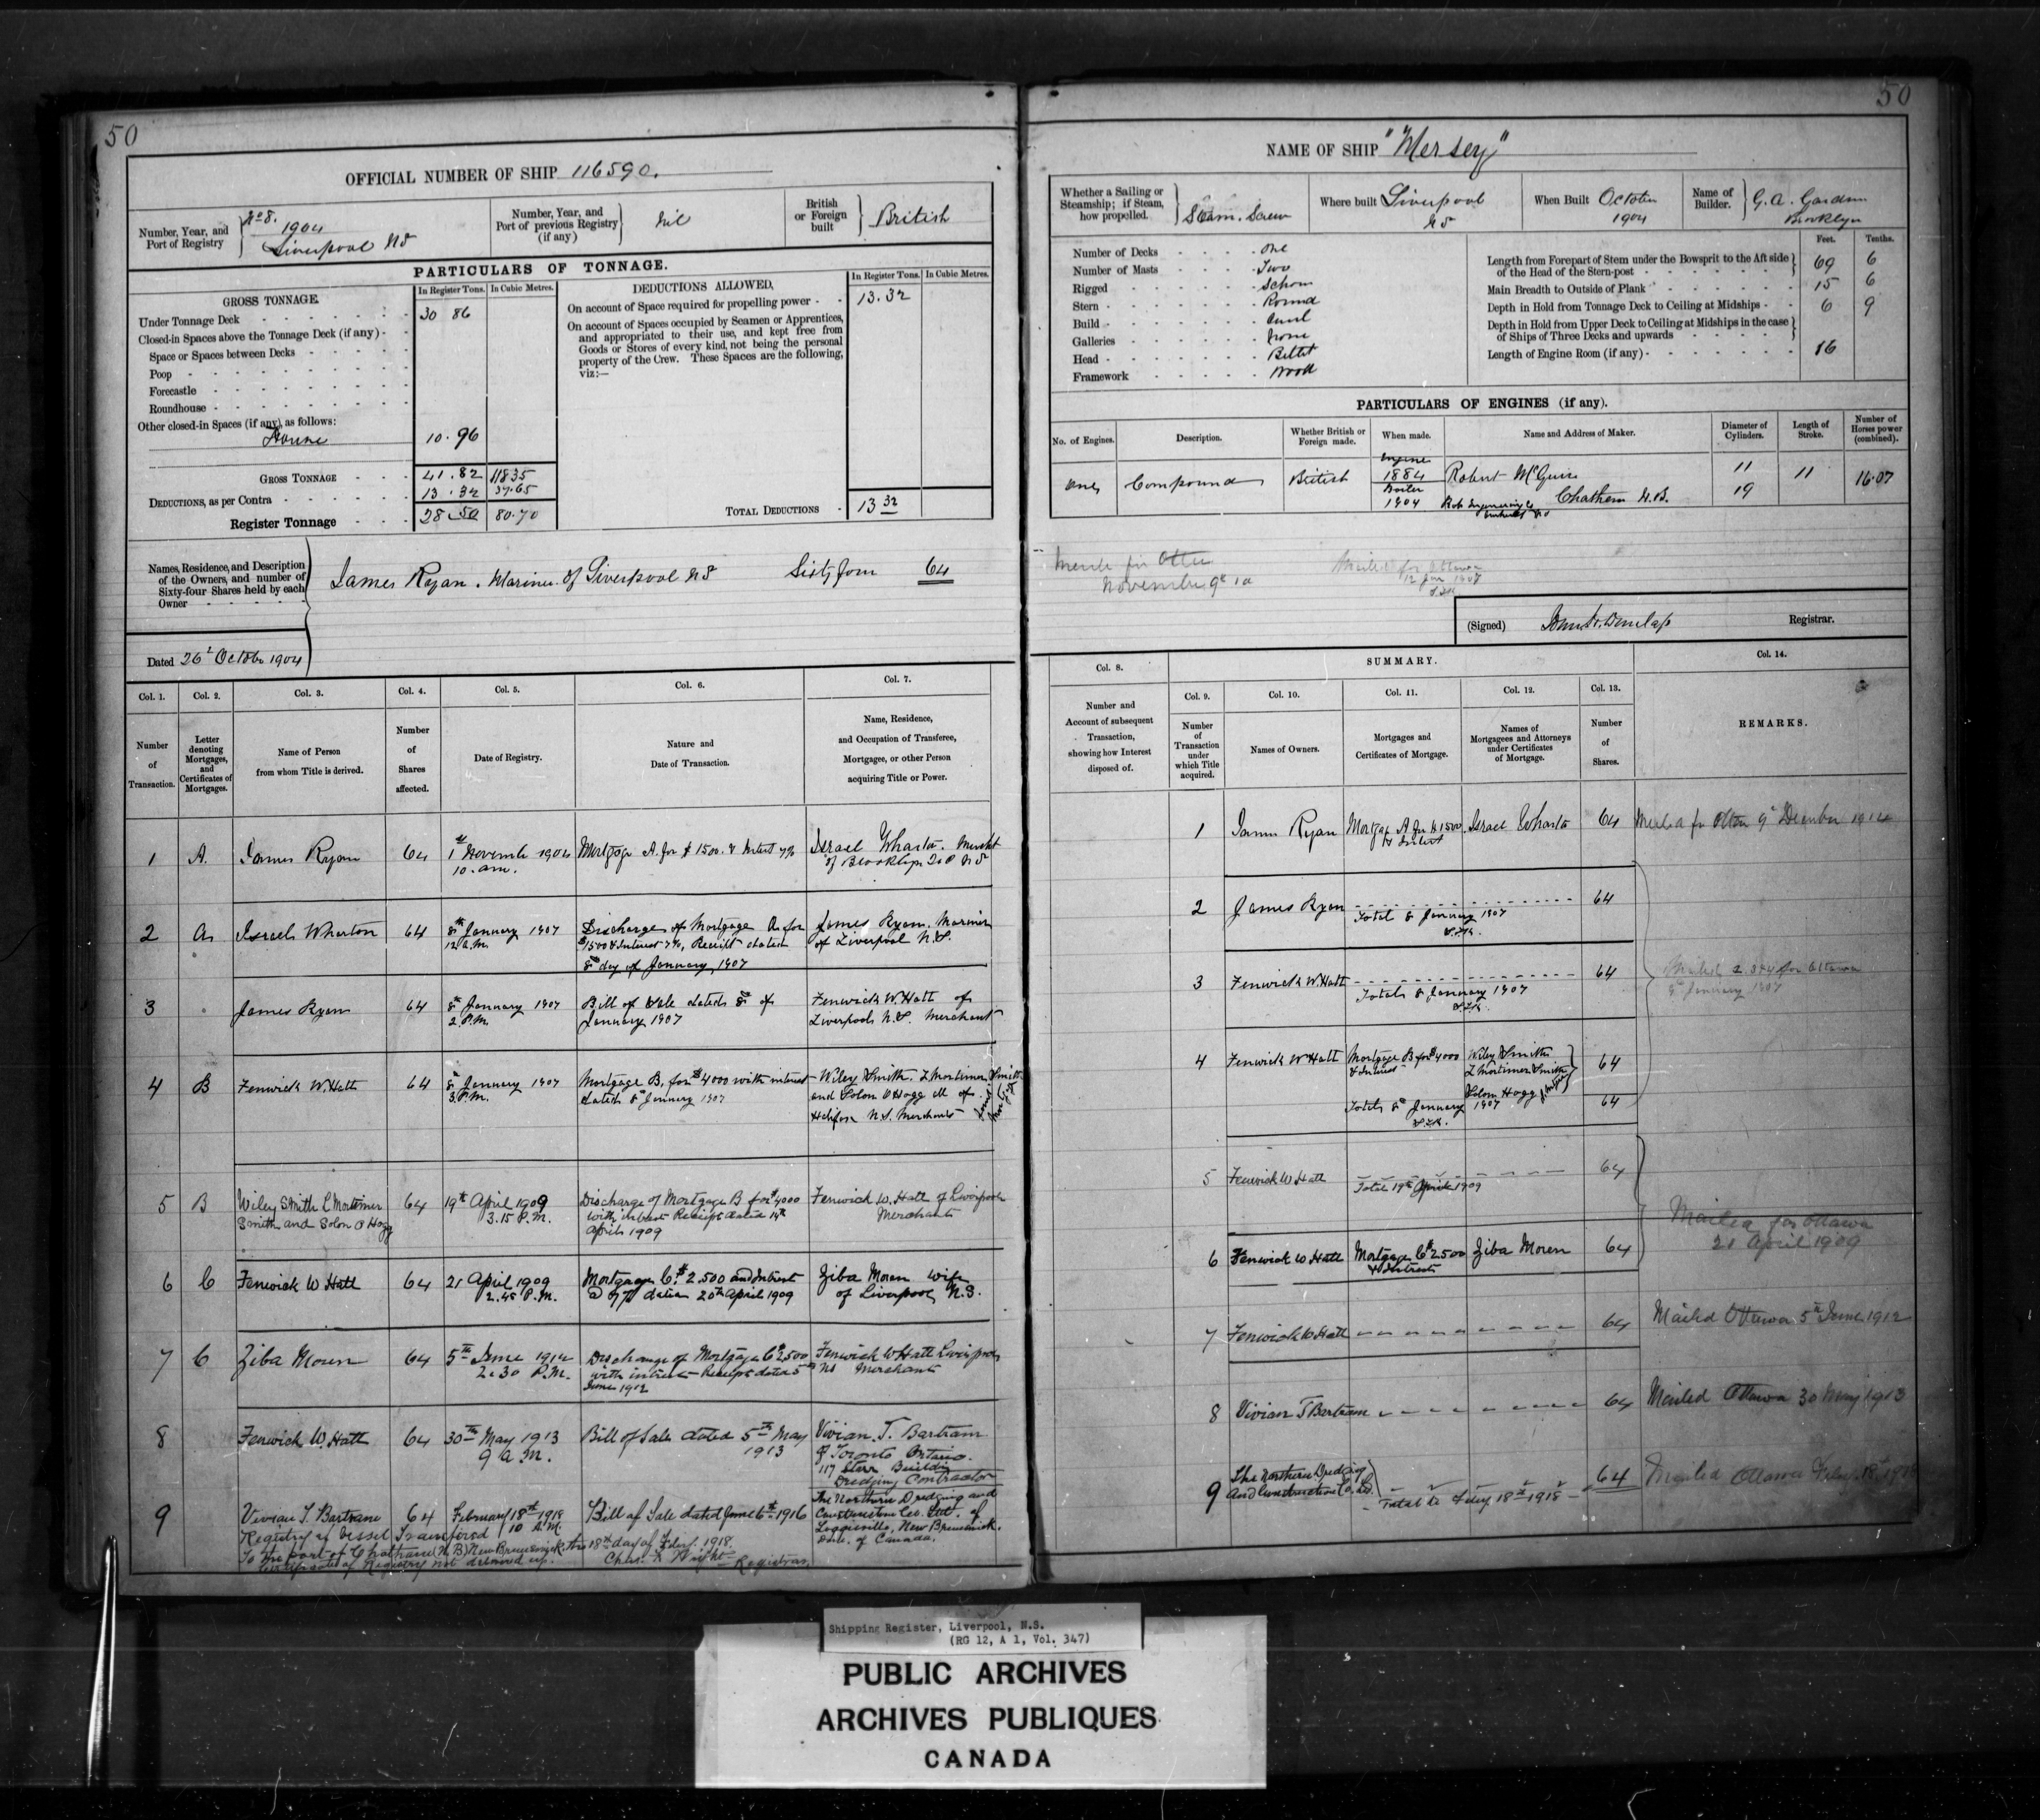 50
OFFICIAL NUMBER OF SHIP 116590.
Number, Year, and Port of Registry } No 8. 1904 Liverpool NS
Number, Year, and Port of previous Registry (if any) } nil
British or Foreign built } British
PARTICULARS OF TONNAGE.
GROSS TONNAGE.
In Register Tons. In Cubic Metres.
Under Tonnage Deck 30 86
Closed-in Spaces above the Tonnage Deck (if any) -
Space or Spaces between Decks
Poop
Forecastle
Roundhouse
Other closed-in Spaces (if any), as follows:
House 10.96
GROSS TONNAGE 41.82 118.35
DEDUCTIONS, as per Contra 13.32 37.65
Register Tonnage 28.50 80.70
DEDUCTIONS ALLOWED.
In Register Tons. In Cubic Metres.
On account of Space required for propelling power - - 13.32
On account of Spaces occupied by Seamen or Apprentices,
and appropriated to their use, and kept free from
Goods or Stores of every kind, not being the personal
property of the Crew. These Spaces are the following,
viz:—
TOTAL DEDUCTIONS 13 32
Names, Residence, and Description
of the Owners, and number of
Sixty-four Shares held by each
Owner
James Ryan. Mariner of Liverpool NS Sixty four 64
Dated 26th October 1904
Col. 1. Col. 2. Col. 3. Col. 4. Col. 5. Col. 6. Col. 7.
Number of Transaction.
Letter denoting Mortgages, and Certificates of Mortgages.
Name of Person from whom Title is derived.
Number of Shares affected.
Date of Registry.
Nature and Date of Transaction.
Name, Residence, and Occupation of Transferee, Mortgagee, or other Person acquiring Title or Power.
1 A. James Ryan 64 1st November 1904 Mortgage A. for $1500. & Interest 7% Israel Wharton. Merchant
10. am. of Brooklyn NS
2 A Israel Wharton 64 8th January 1907 Discharge of Mortgage A for James Ryan. Mariner
12 a.m. $1500 & Interest 7%, Receipt dated of Liverpool N.S.
8th day of January, 1907
3 James Ryan 64 8th January 1907 Bill of Sale dated 8th of Fenwick W. Hatt of
2 P.M. January 1907 Liverpool N.S. Merchant
4 B Fenwick W. Hatt 64 8th January 1907 Mortgage B. for $4000 with interest Wiley Smith. L Mortimer Smith
3 P.M. dated 8th January 1907 and Solon O Hogg all of
Halifax N.S. Merchants
5 B Wiley Smith L Mortimer 64 19th April 1909 Discharge of Mortgage B for $4000 Fenwick W. Hatt of Liverpool
Smith and Solon O Hogg 3.15 P.M. with interest Receipt dated 19th Merchant
April 1909
6 C Fenwick W Hatt 64 21 April 1909 Mortgage C. $2.500 and Interest Ziba Moren wife
2.45 P.M. @ 7% dated 20th April 1909 of Liverpool N.S.
7 C Ziba Moren 64 5th June 1912 Discharge of Mortgage C $2500 Fenwick W Hatt Liverpool
2.30 P.M. with interest Receipt dated 5th NS Merchant
June 1912
8 Fenwick W. Hatt 64 30th May 1913 Bill of Sale dated 5th May Vivian. T. Bartram
9 a.M. 1913 of Toronto Ontario.
117 Starr Building
Dredging Contractor
9 Vivian T. Bartram 64 February 18th 1918 Bill of Sale dated June 6th 1916 The Northern Dredging and
10 A.M. Construction Co. Ltd. of
Loggieville, New Brunswick.
Dom. of Canada.
Registry of Vessel Transfered
To the port of Chatham (N.B) New Brunswick this 18th day of Feby. 1918.
Certificate of Registry not delivered up. Chas. Wright Registrar.
50
NAME OF SHIP "Mersey"
Whether a Sailing or Steamship; if Steam, how propelled. } Steam. Screw
Where built Liverpool NS
When Built October 1904
Name of Builder. } G. A. Gardner Brooklyn
Number of Decks One
Number of Masts Two
Rigged Schom
Stern Round
Build Carvel
Galleries None
Head Billet
Framework Wood
Feet. Tenths.
Length from Forepart of Stem under the Bowsprit to the Aft side
of the Head of the Stern-post 69 6
Main Breadth to Outside of Plank 15 6
Depth in Hold from Tonnage Deck to Ceiling at Midships 6 9
Depth in Hold from Upper Deck to Ceiling at Midships in the case
of Ships of Three Decks and upwards
Length of Engine Room (if any) 16
PARTICULARS OF ENGINES (if any).
No. of Engines. Description. Whether British or Foreign made. When made. Name and Address of Maker. Diameter of Cylinders. Length of Stroke. Number of Horses power (combined).
One Compound British Engine 1884 Robert McGuire 11 11 16.07
Boiler 1904 Chatham N.B. 19
Rob Engineering Co
November 9th 10
Mailed for Ottawa
12 Jan 1907
(Signed) Dunlap Registrar.
SUMMARY.
Col. 8. Col. 9. Col. 10. Col. 11. Col. 12. Col. 13. Col. 14.
Number and Account of subsequent Transaction, showing how Interest disposed of.
Number of Transaction under which Title acquired.
Names of Owners.
Mortgages and Certificates of Mortgage.
Names of Mortgagees and Attorneys under Certificates of Mortgage.
Number of Shares.
REMARKS.
1 James Ryan Mortgage A for $1500 Israel Wharton 64 Mailed for Ottawa 9th December 1904
& Interest
2 James Ryan 64
Total 8 January 1907
3 Fenwick W. Hatt 64
Total 8 January 1907
Mailed for Ottawa
8th January 1907
4 Fenwick W Hatt Mortgage B for $4000 Wiley Smith 64
& Interest L Mortimer Smith
Solon Hogg
Total 8th January 1907 64
5 Fenwick W Hatt 64
Total 19th April 1909
6 Fenwick W Hatt Mortgage C $2500 Ziba Moren 64
& Interest
Mailed for Ottawa
21 April 1909
7 Fenwick W Hatt 64 Mailed Ottawa 5th June 1912
8 Vivian T Bartram 64 Mailed Ottawa 30 May 1913
9 The Northern Dredging
and Construction Co. Ltd. 64 Mailed Ottawa Feby. 18th 1918
Total to Feby 18th 1918
Shipping Register, Liverpool, N.S.
(RG 12, A 1, Vol. 347)
PUBLIC ARCHIVES
ARCHIVES PUBLIQUES
CANADA